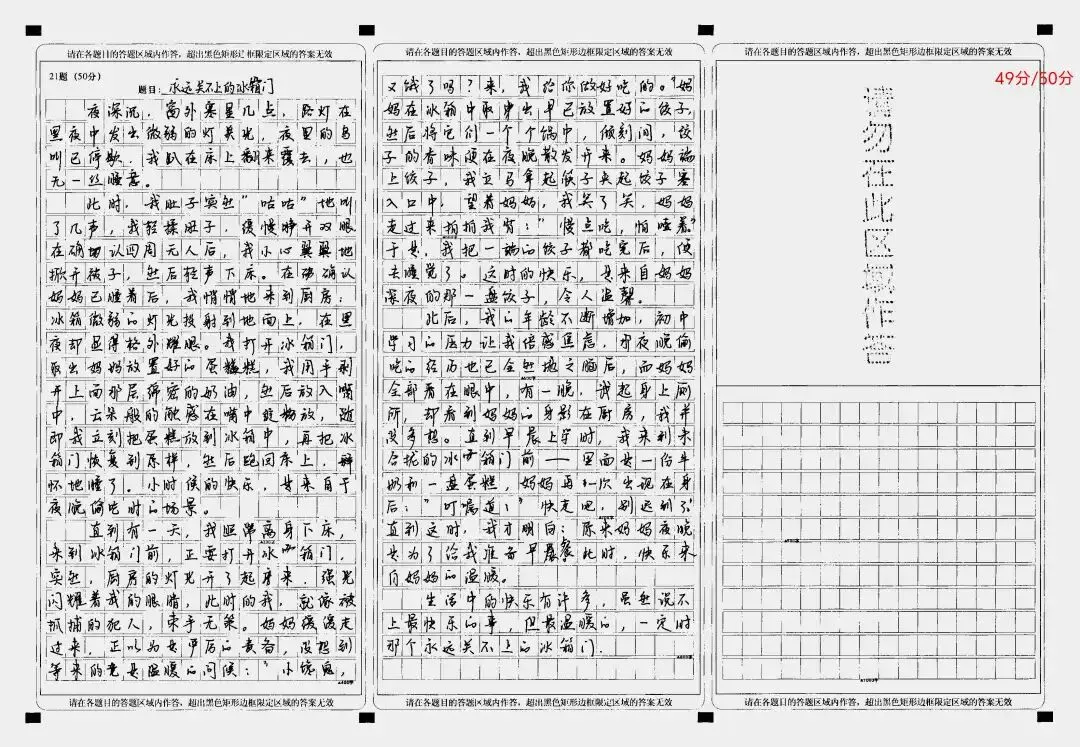 请在各题目的答题区域内作答，超出黑色矩形边框限定区域的答案无效
21题（50分）
题目：永远关不上的冰箱门
夜深沉，窗外寒星几点，路灯在
黑夜中发出微弱的灯光，夜里的鸟
叫已停歇，我趴在床上翻来覆去，也
无一丝睡意。
此时，我肚子突然"咕咕"地叫
了几声，我轻揉肚子，缓慢睁开双眼
在确认四周无人后，我小心翼翼地
掀开被子，然后轻声下床。在确认
妈妈已睡着后，我悄悄地来到厨房：
冰箱微弱的灯光投射到地面上，在黑
夜却显得格外耀眼。我打开冰箱门，
取出妈妈放置好的蛋糕，我用手剥
开上面那层绵密的奶油，然后放入嘴
中，云朵般的触感在嘴中绽放，随
即我立刻把蛋糕放到冰箱中，再把冰
箱门恢复到原样，然后跑回床上，
怀地睡了。小时候的快乐，是来自于
夜晚偷吃时的场景。
直到有一天，我照常离身下床，
来到冰箱门前，正要打开冰箱门，
突然，厨房的灯光开了起来，强光
闪耀着我的眼睛，此时的我，就像被
抓捕的犯人，束手无策。妈妈缓缓走
过来，正以为是严厉的责备，没想到
等来的竟是温暖的问候："小馋鬼，
请在各题目的答题区域内作答，超出黑色矩形边框限定区域的答案无效
请在各题目的答题区域内作答，超出黑色矩形边框限定区域的答案无效
又饿了吗？来，我给你做好吃的。"妈
妈在冰箱中取出早已放置好的饺子，
然后将它们一个个锅中，倾刻间，饺
子的香味便在夜晚散发开来。妈妈端
上饺子，我立马拿起筷子夹起饺子塞
入口中，望着妈妈，我笑了笑，妈妈
走过来拍拍我背："慢点吃，怕噎着。"
于是，我把一端的饺子都吃完后，便
去睡觉了。这时的快乐，是来自妈妈
深夜的那一盘饺子，令人温馨。
此后，我的年龄不断增加，初中
学习的压力让我倍感焦虑，夜晚偷
吃的经历也已全然抛之脑后，而妈妈
全部看在眼中，有一晚，我起身上厕
所，却看到妈妈的身影在厨房，我并
没多想。直到早晨上学时，我来到未
合拢的冰箱门前——里面是一份牛
奶和一盘蛋糕，妈妈再一次出现在身
后："叮嘱道："快走吧，别迟到了"
直到这时，我才明白：原来妈妈夜晚
是为了给我准备早餐此时，快乐来
自妈妈的温暖。
生活中的快乐有许多，虽然说不
上最快乐的事，但最温暖的，一定时
那个永远关不上的冰箱门．
请在各题目的答题区域内作答，超出黑色矩形边框限定区域的答案无效
请在各题目的答题区域内作答，超出黑色矩形边框限定区域的答案无效
49分/50分
请勿在此区域作答
请在各题目的答题区域内作答，超出黑色矩形边框限定区域的答案无效